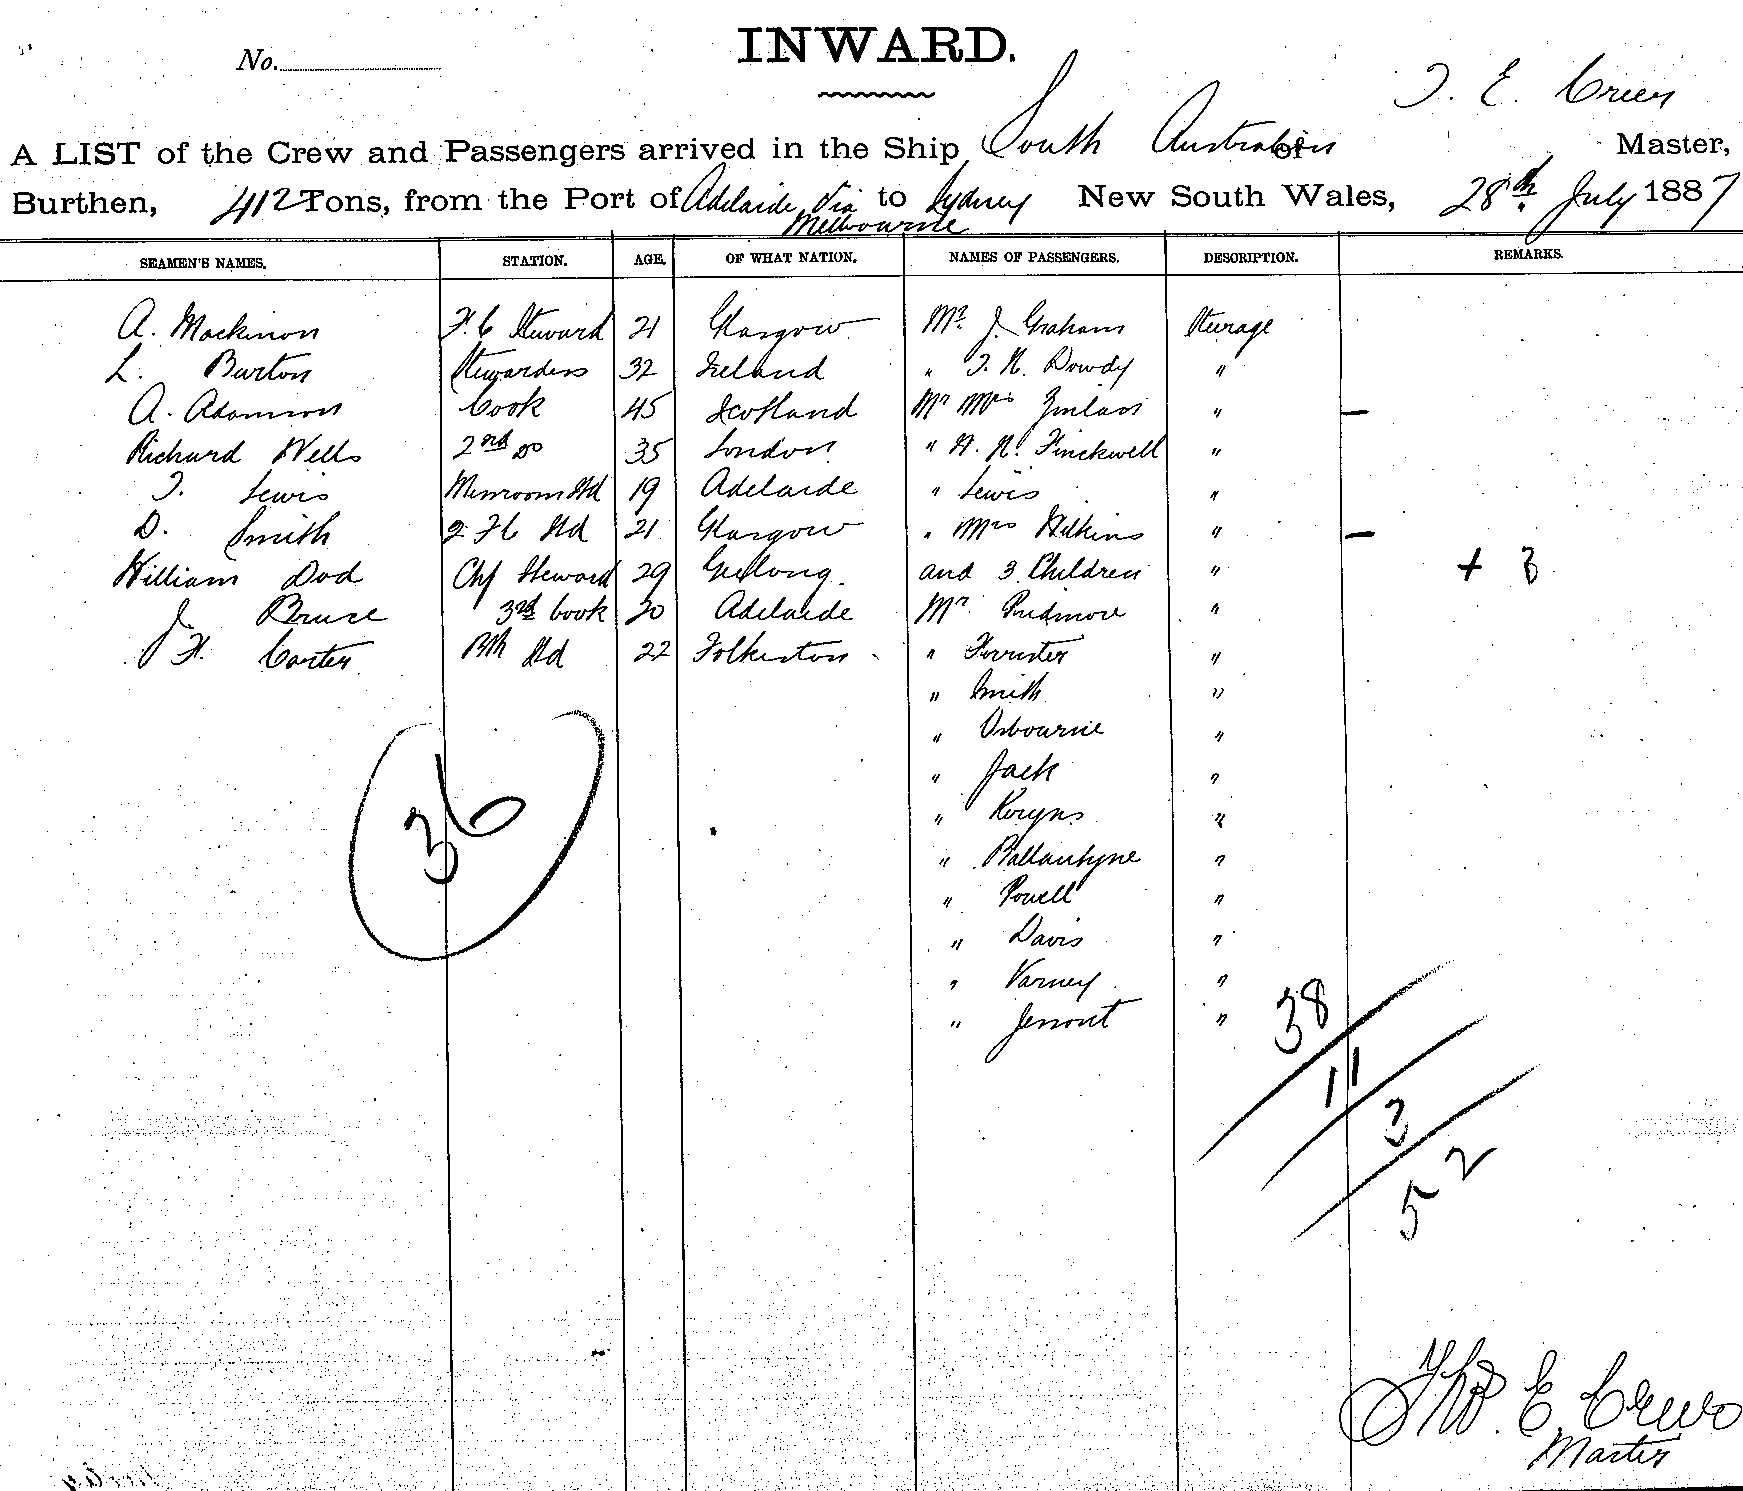 No.
INWARD.
T. E. Creer
A LIST of the Crew and Passengers arrived in the Ship South Australian of Master,
Burthen, 412 Tons, from the Port of Adelaide Via Melbourne to Sydney New South Wales, 28th July 1887
SEAMEN'S NAMES. STATION. AGE. OF WHAT NATION. NAMES OF PASSENGERS. DESCRIPTION. REMARKS.
A. Mackinon F.C Steward 21 Glasgow Mr. J. Graham Steerage
L. Burton Stewardess 32 Ireland " Dowdy "
A. Adamson Cook 45 Scotland Mr Mrs "
Richard Wells 2nd Do 35 London " "
T. Lewis Messroom Std 19 Adelaide " Lewis "
D. Smith 2 FC Std 21 Glasgow " Mrs Wilkins "
William Dod Chf Steward 29 Geelong. and 3 Children " + 3
J Bruce 3rd Cook 20 Adelaide Mr. Pridmore "
J F. Carter Std 22 Folkeston " Forrester "
" Smith "
" Osbourne "
" Jack "
" "
" Ballantyne "
" Powell "
" Davis "
" Varney "
" "
36
38
11
3
52
Thos. E. Creer
Master